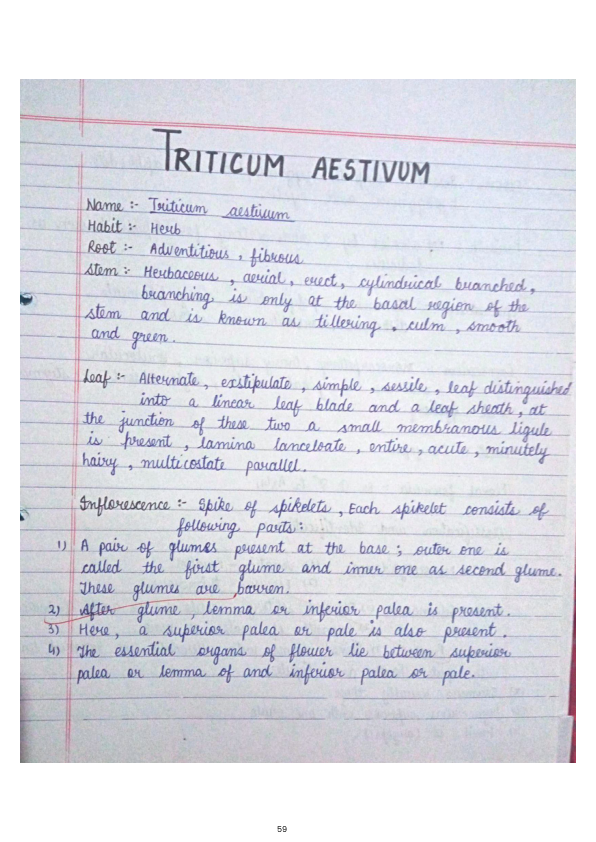 TRITICUM AESTIVUM
Name :- Triticum aestivum
Habit :- Herb
Root :- Adventitious , fibrous
Stem :- Herbaceous , aerial , erect, cylindrical branched,
branching is only at the basal region of the
stem and is known as tillering , culm , smooth
and green.
Leaf :- Alternate , exstipulate , simple , sessile , leaf distinguished
into a linear leaf blade and a leaf sheath , at
the junction of these two a small membranous ligule
is present , lamina lanceloate , entire , acute , minutely
hairy , multicostate parallel.
Inflorescence :- Spike of spikelets , Each spikelet consists of
following parts :
1) A pair of glumes present at the base ; outer one is
called the first glume and inner one as second glume.
These glumes are barren.
2) After glume , lemma or inferior palea is present .
3) Here, a superior palea or pale is also present .
4) The essential organs of flower lie between superior
palea or lemma of and inferior palea or pale.
59